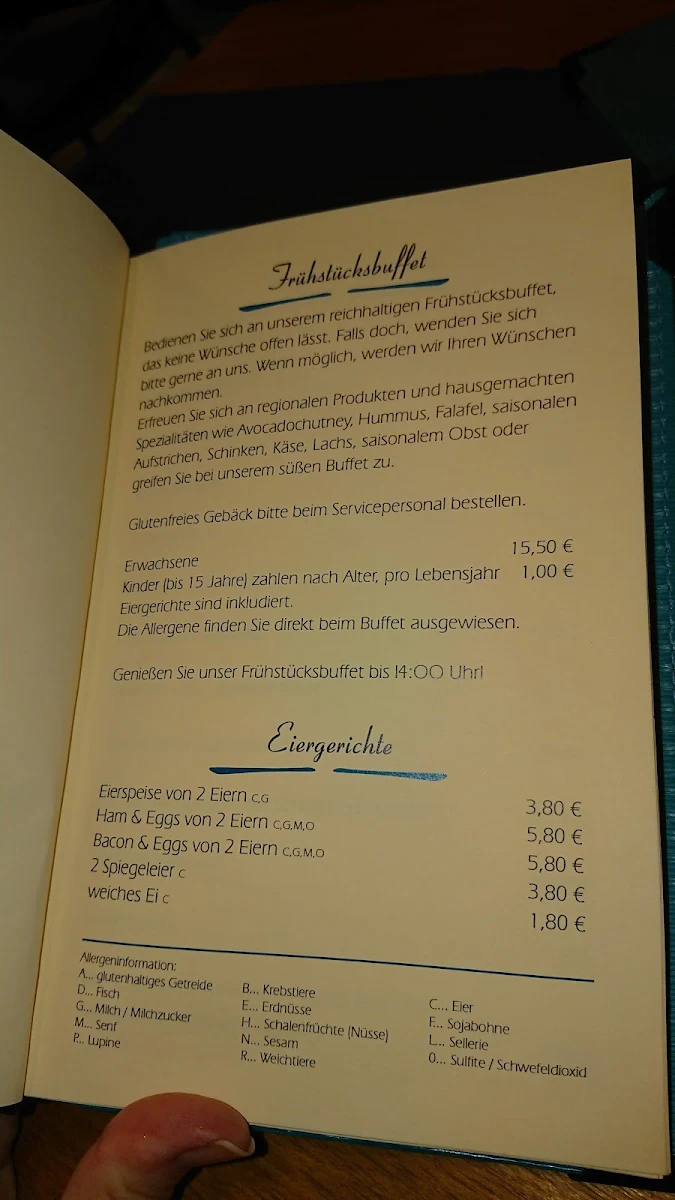 Frühstücksbuffet
Bedienen Sie sich an unserem reichhaltigen Frühstücksbuffet,
das keine Wünsche offen lässt. Falls doch, wenden Sie sich
bitte gerne an uns. Wenn möglich, werden wir Ihren Wünschen
nachkommen.
Erfreuen Sie sich an regionalen Produkten und hausgemachten
Spezialitäten wie Avocadochutney, Hummus, Falafel, saisonalen
Aufstrichen, Schinken, Käse, Lachs, saisonalem Obst oder
greifen Sie bei unserem süßen Buffet zu.
Glutenfreies Gebäck bitte beim Servicepersonal bestellen.
Erwachsene 15,50 €
Kinder (bis 15 Jahre) zahlen nach Alter, pro Lebensjahr 1,00 €
Eiergerichte sind inkludiert.
Die Allergene finden Sie direkt beim Buffet ausgewiesen.
Genießen Sie unser Frühstücksbuffet bis 14:00 Uhr!
Eiergerichte
Eierspeise von 2 Eiern C,G 3,80 €
Ham & Eggs von 2 Eiern C,G,M,O 5,80 €
Bacon & Eggs von 2 Eiern C,G,M,O 5,80 €
2 Spiegeleier C 3,80 €
weiches Ei C 1,80 €
Allergeninformation:
A... glutenhaltiges Getreide B... Krebstiere C... Eier
D... Fisch E... Erdnüsse F... Sojabohne
G... Milch / Milchzucker H... Schalenfrüchte (Nüsse) L... Sellerie
M... Senf N... Sesam O... Sulfite / Schwefeldioxid
P... Lupine R... Weichtiere